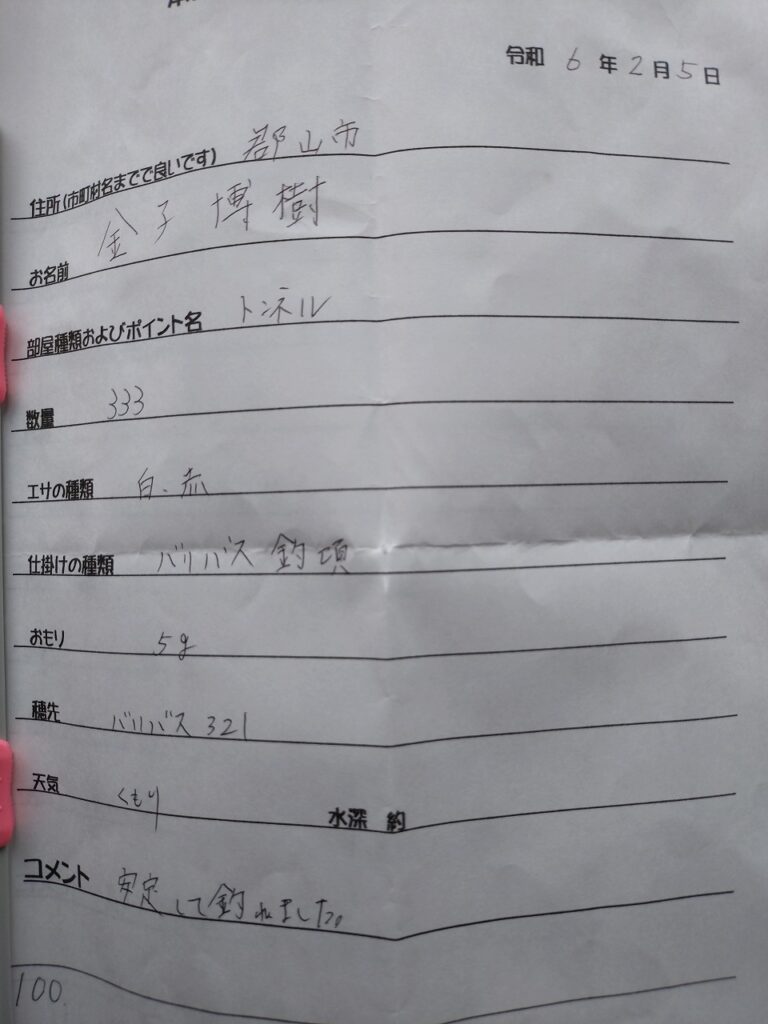 令和 6 年 2 月 5 日
住所(市町村名までで良いです) 郡山市
お名前 金子 博樹
部屋種類およびポイント名 トンネル
数量 333
エサの種類 白、赤
仕掛けの種類 バリバス 釣頃
おもり 5g
穂先 バリバス 321
天気 くもり 水深 約
コメント 安定して釣れました。
100.